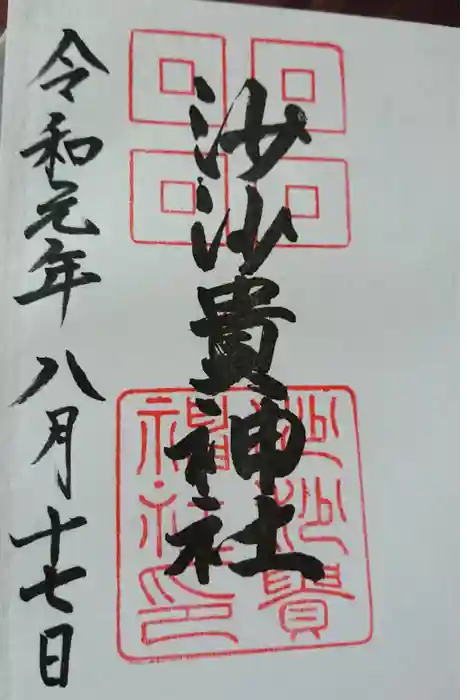 沙沙貴神社
令和元年八月十七日
沙沙貴
神社印